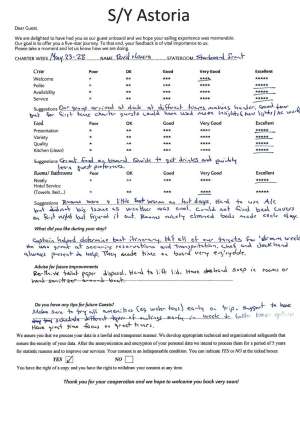 S/Y Astoria
Dear Guest,
We are delighted to have had you as our guest onboard and we hope your sailing experience was memorable.
Our goal is to offer you a five-star journey. To that end, your feedback is of vital importance to us.
Please take a moment and let us know how we are doing.
CHARTER WEEK: May 23-28 NAME: STATEROOM: Starboard Front
Crew Poor OK Good Very Good Excellent
Welcome * ** *** **** *****
Profile * ** *** **** *****
Availability * ** *** **** *****
Service * ** *** **** *****
Suggestions: Our group arrived at dock at different times making harder. Good for first time charter guests could have used more
Food Poor OK Good Very Good Excellent
Presentation * ** *** **** *****
Variety * ** *** **** *****
Quality * ** *** **** *****
Kitchen (clean) * ** *** **** *****
Suggestions: Great food my board. to get drinks and
guest preference.
Rooms/ Bathrooms Poor OK Good Very Good Excellent
Ready * ** *** **** *****
Hotel Service
(Towels, Bed...) * ** *** **** *****
Suggestions: Rooms were a little hot last days. Hard to use A/C
but didn't big issue as weather was cool. Could not find bed covers
on first night but figured it out. Rooms nicely cleaned beds made each days.
What did you like during your day?
Captain helped determine best itinerary. Hit all of our targets for dream week
He was great at securing reservations and transportation. Chef and
always present to help. They made time on board very enjoyable.
Advise for future improvements
toilet paper disposal. Hard to lift lid. Have soap in rooms or
hand sanitizer around boat.
Do you have any tips for future Guests?
Make sure to try all amenities (eg water toys) early on trip.
different types of early in week to
Have great time focus on great times.
We assure you that we process your data in a lawful and transparent manner. We develop appropriate technical and organizational safeguards that
assure the security of your data. After the anonymization and encryption of your personal data we intend to process them for a period of 5 years
for statistic reasons and to improve our services. Your consent is an indispensable condition. You can indicate YES or NO at the ticked boxes:
YES NO
You have the right of copy, and you have the right to withdraw your consent at any time.
Thank you for your cooperation and we hope to welcome you back very soon!